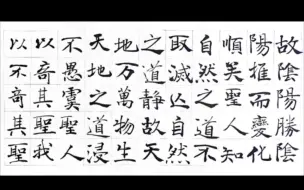 故陰陽勝陰
陽推而變化
順矣聖人知
自然之道不
取滅亾自然
之道静故天
地万萬物生
天地之道浸
不愚虞聖人
以奇其聖我
以不奇其聖